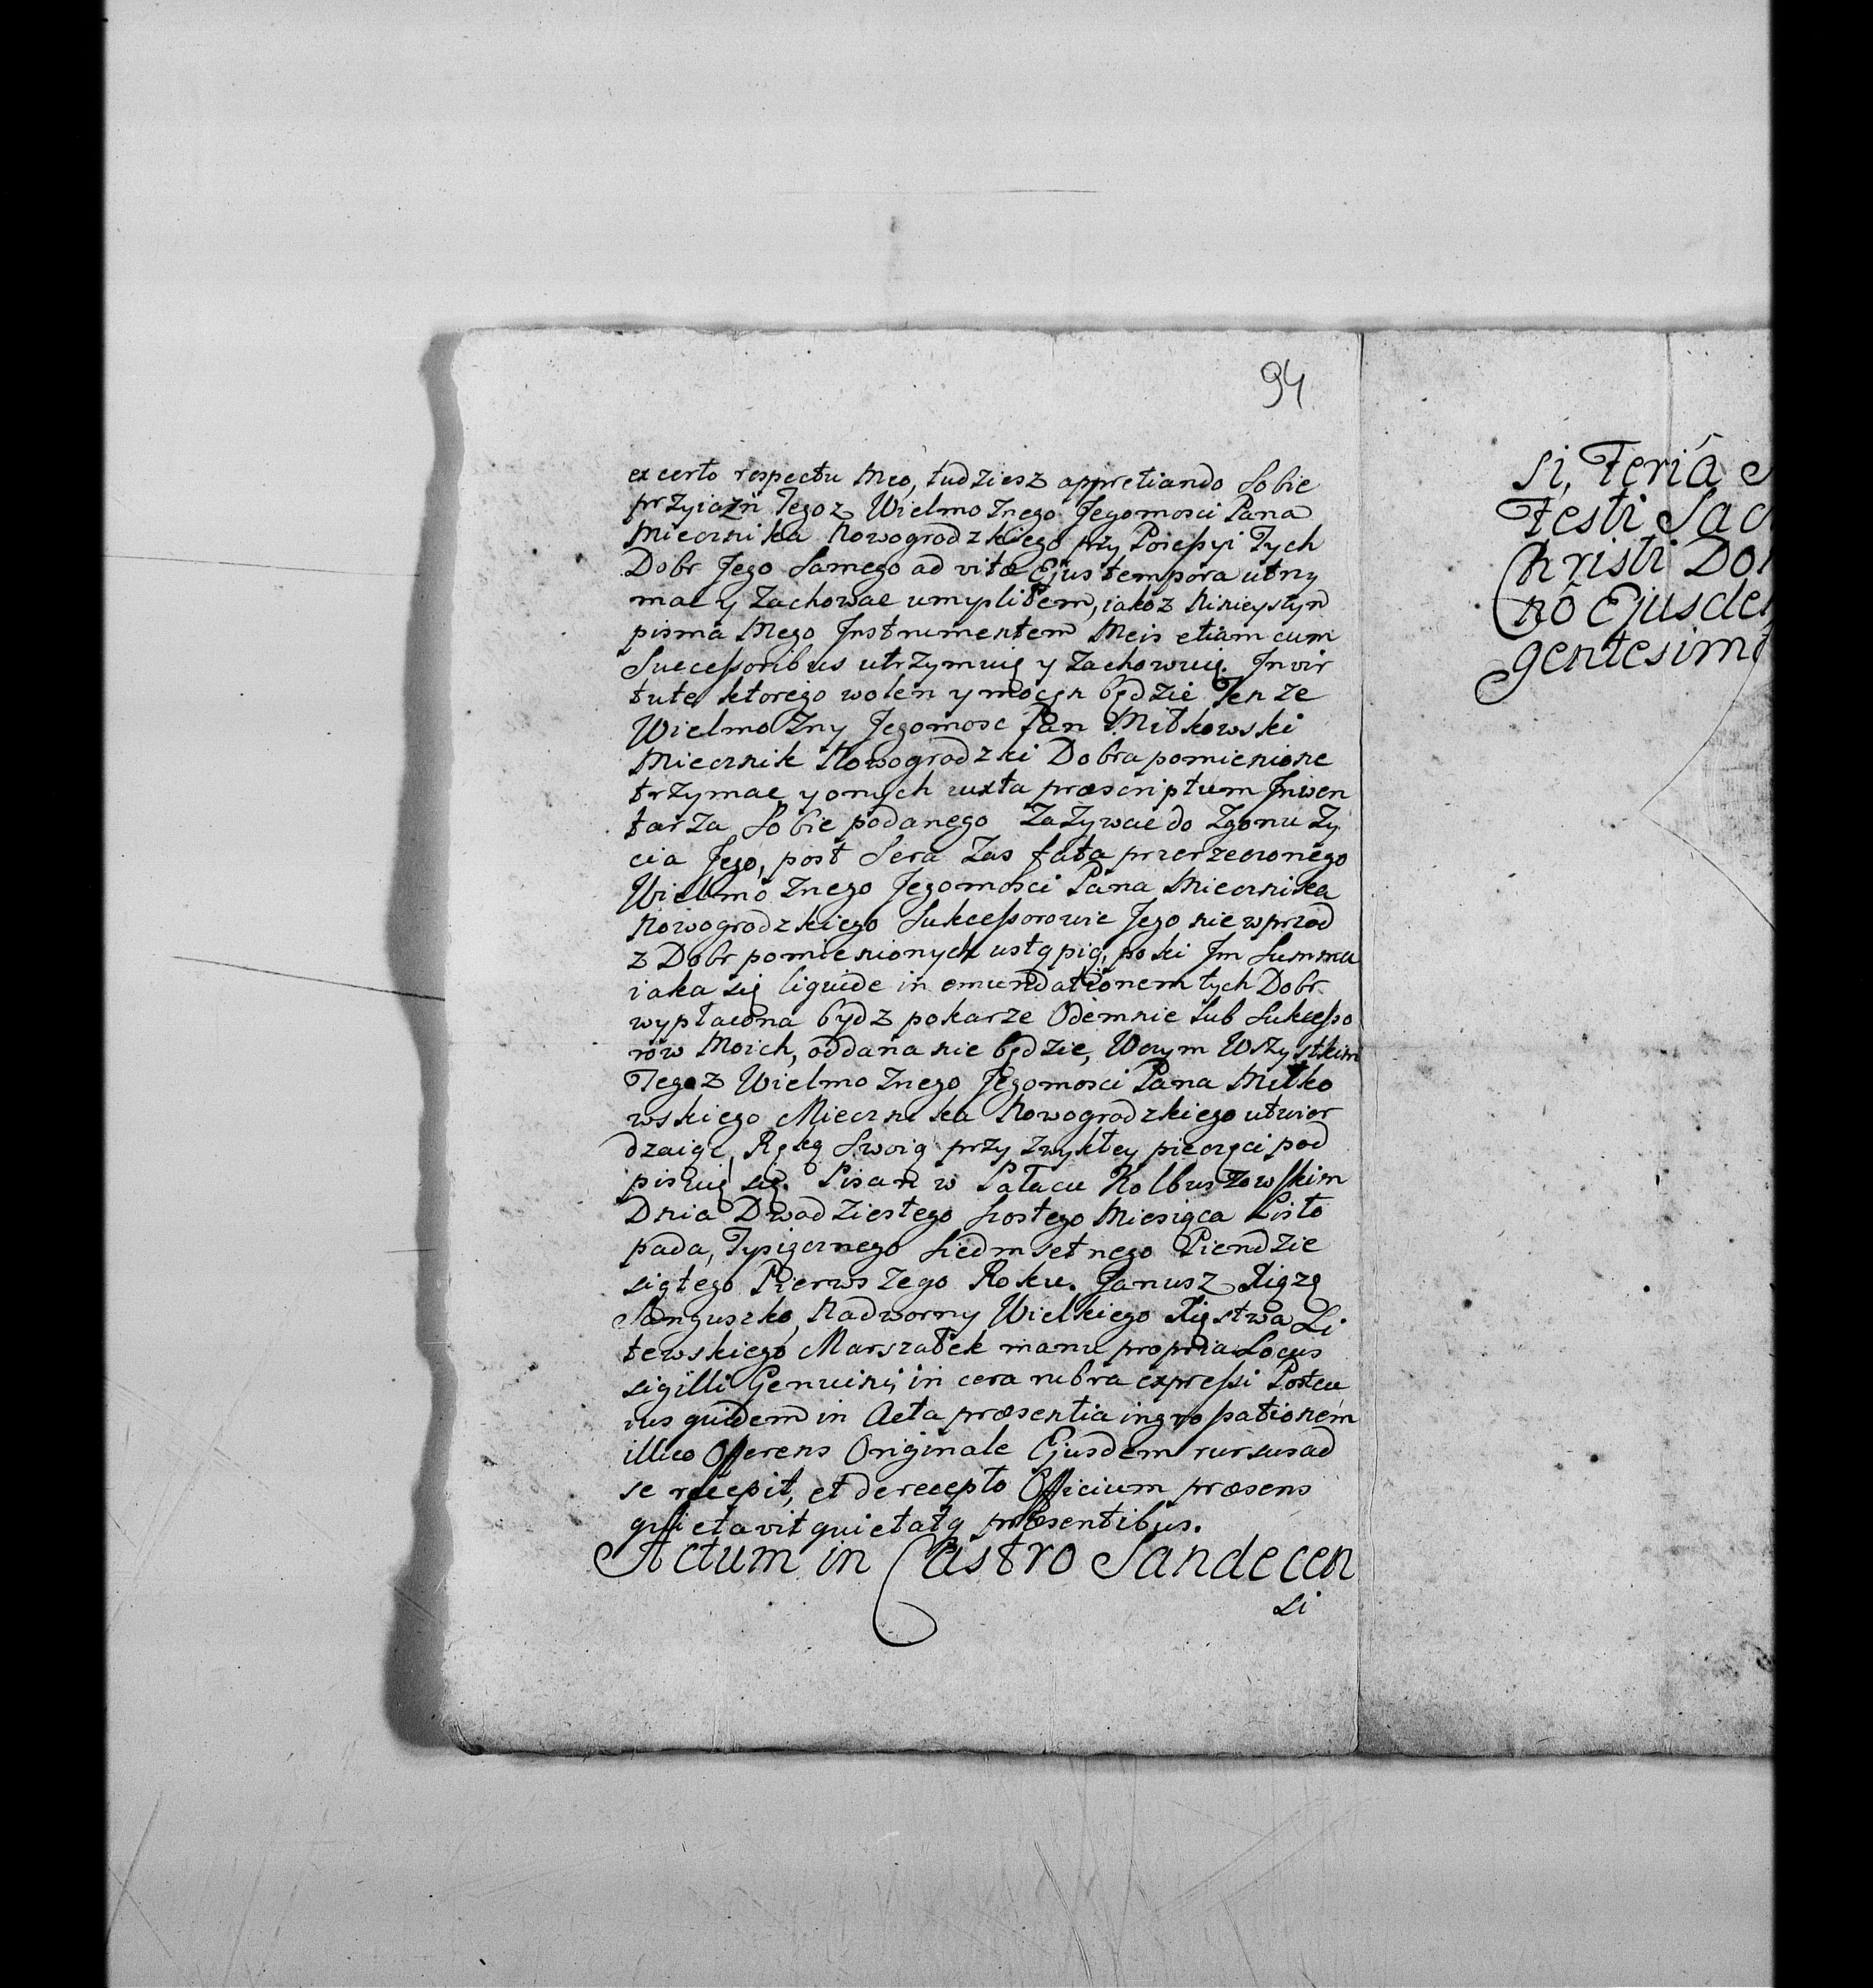 94
ex certo respectu Meo, tudziesz appretiando Sobie
przyiazń Tegoz Wielmoznego Jegomosci Pana
Miecznika Nowogrodzkiego przy Poseſsyi Tych
Dobr Jego Samego ad vitæ Ejus tempora utrzy
mac y Zachowac umyslilem, iakoz Ninieyszym
pisma Mego Jnstrumentem Meis etiam cum
Succeſsoribus utrzymuię y zachowuię. Jn vir
tute ktorego wolen y mocen będzie Ten ze
Wielmozny Jegomosc Pan Miłkowski
Miecznik Nowogrodzki Dobra pomienione
trzymac y onych iuxta præscriptum Jnwen
tarza Sobie podanego Zazywac do Zgonu Zy
cia Jego, post Sera Zas fata przerzeczonego
Wielmoznego Jegomosci Pana Miecznika
Nowogrodzkiego Sukceſsorowie Jego nie wprzod
z Dobr pomienionych ustąpią, poki Jm Summa
iaka się liquide in emundationem tych Dobr
wypłacona bydz pokarze Odemnie lub Sukceſso
row Moich, oddana nie będzie, Wczym Wszystkim
Tegoz Wielmoznego Jegomosci Pana Miłko
wskiego Miecznika Nowogrodzkiego utwier
dzaiąc, Ręką Swoią przy zwykłey pieczęci pod
pisuię się. Pisan w Pałacu Kolbuszowskim
Dnia Dwadziestego Szostego Miesiąca Listo
pada, Tysiącznego Siedmsetnego Piendzie
siątego Pierwszego Roku. Janusz Xiązą
Sanguszko, Nadworny Wielkiego Xięstwa Li
tewskiego Marszałek manu propria Locus
sigilli Genuini, in cera rubra expreſsi Post cu
ius quidem in Acta præsentia ingroſsationem
illico Offerens Originale Ejusdem rursus ad
se recepit, et de recepto Officium præsens
quietavit quietatq præsentibus.
Actum in Castro Sandecen
si
si, Feriá
Festi Sac
Christi Do
nó Ejusde
gentesimo